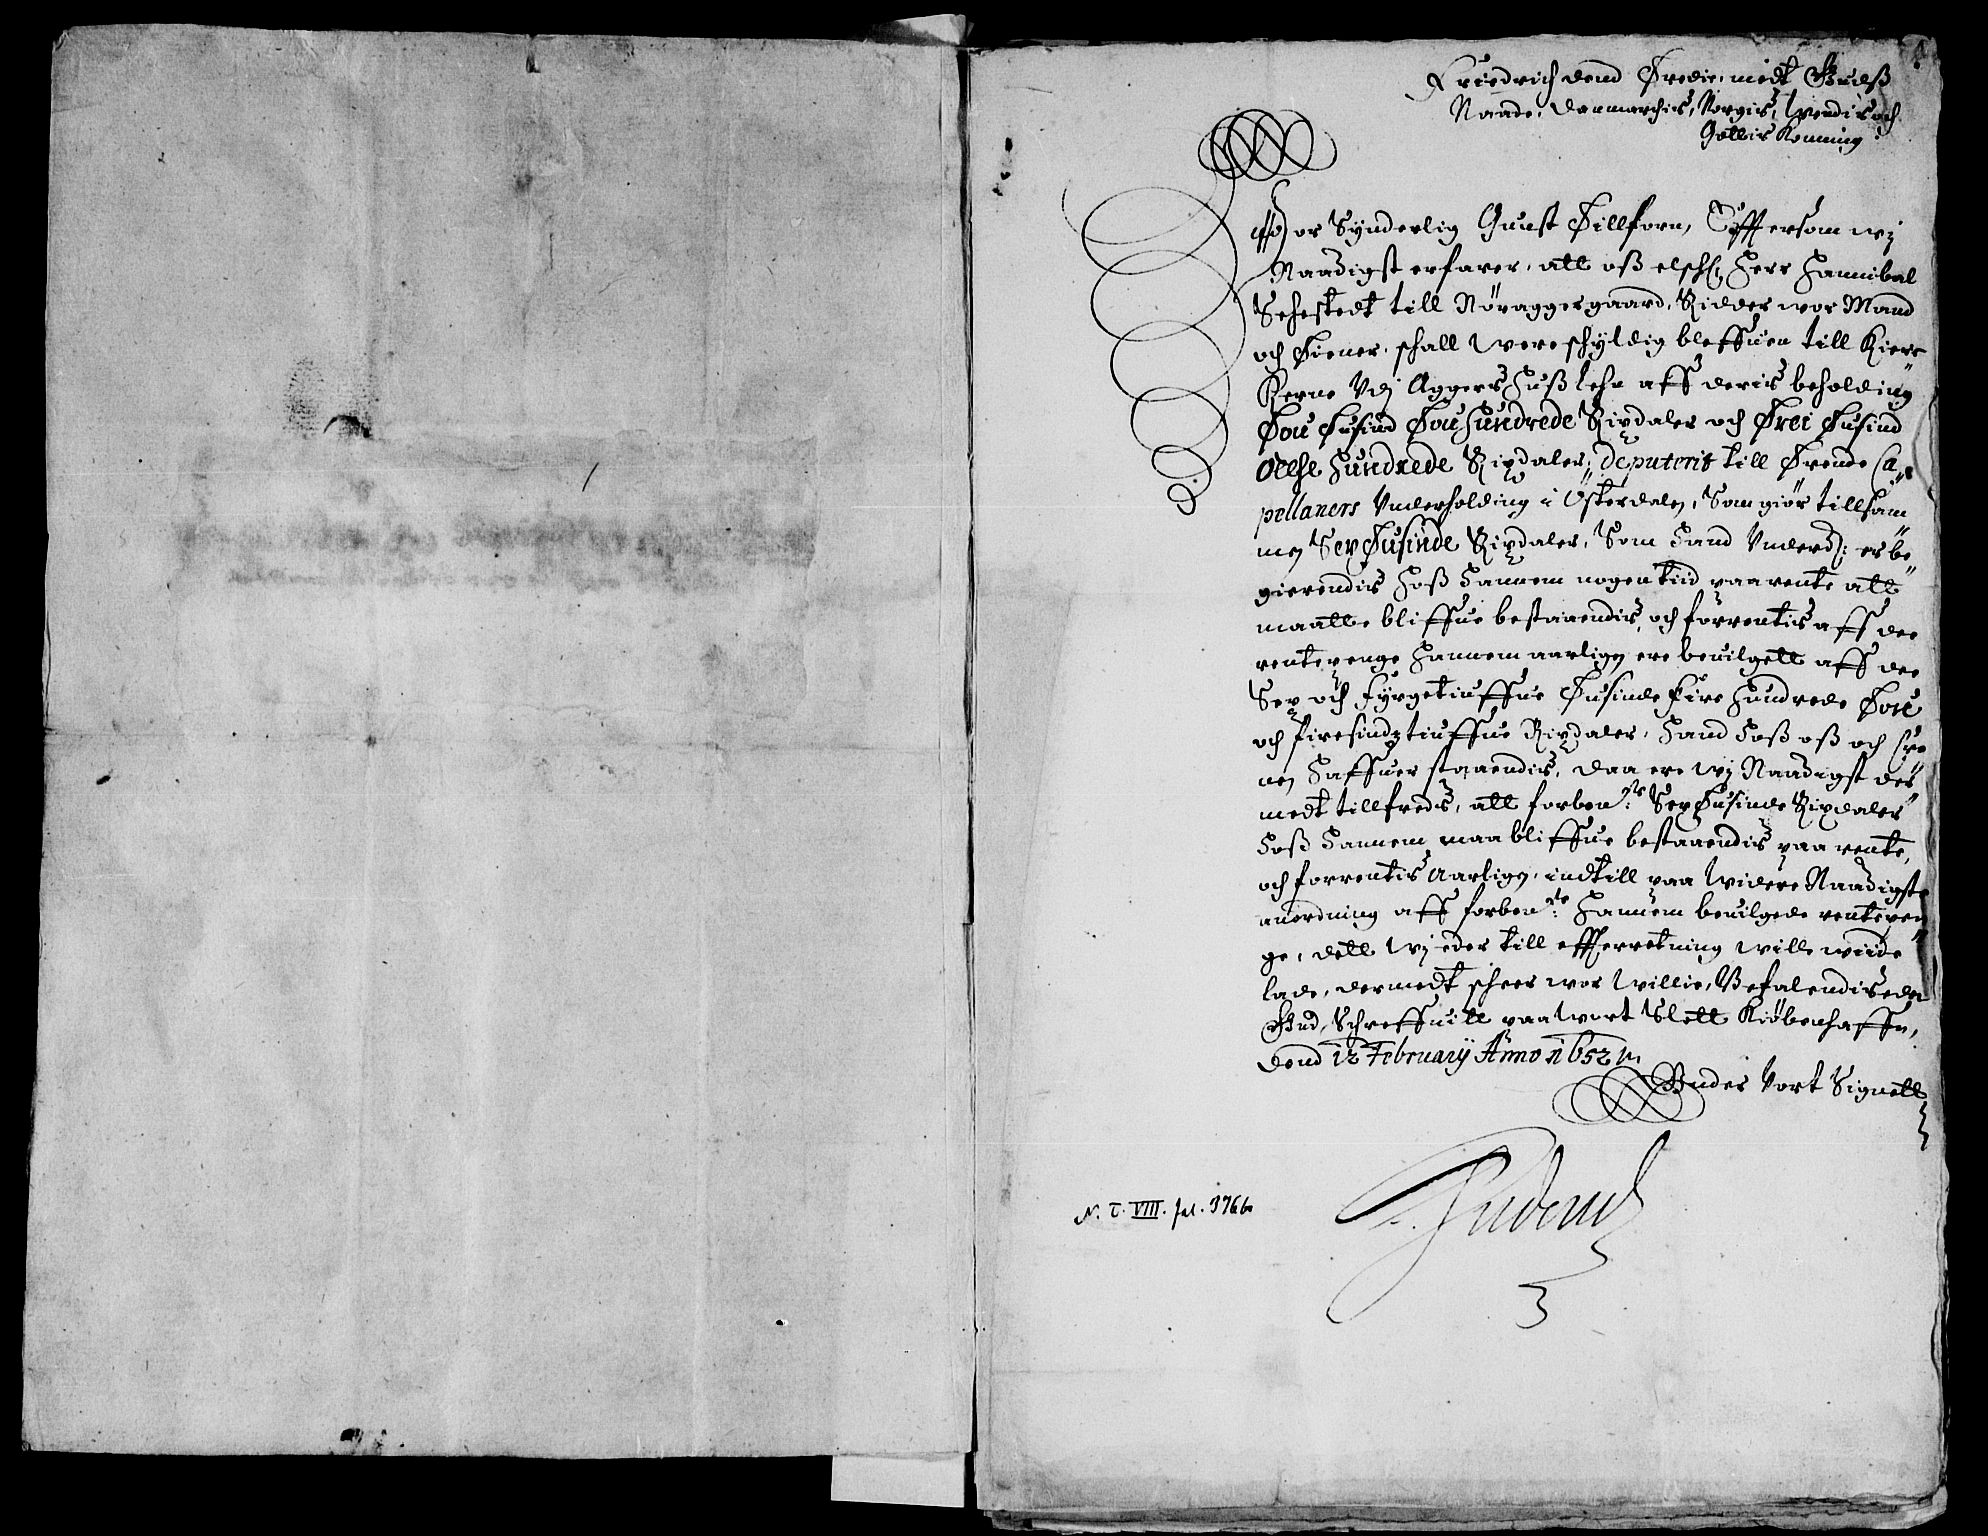 Friedrich dend Tredie, medt Gudß
Naade, Danmarchis, Norgis, Wendis och
Gottis Konning
Wor Synderlig Gunst Tillforn, Efftersom wj
Naadigst erfarer, att oß elsch: Herr Hannibal
Sehestedt till Nøraggergaard, Ridder wor Mand
och Tiener, schall were schyldig bleffuen till Kierc
Kerne Vdj Aggers Huß Lehn aff deris beholding
Tou Tusind Tou Hundrede Rixdaler och Trei Tusind
Otthe Hundrede Rixdaler, deputerit till Trende Ca¬
pellaners Vnderholding i Østerdalen, Som giør tillsam
men Sex Tusinde Rixdaler, Som Hand Vnderd: er be¬
gierendis Hoß Hannem nogen tiid paa rente att
maatte bliffue bestaaendis, och forrentis aff dee
rentepenge Hannem aarligen ere beuilgett aff dee
Sex och Fyrgetiuffue Tusinde Fire Hundrede Tou
och firesindztiuffue Rixdaler, Hand Hoß oß och Cro
nen Haffuer staaendis, daa ere wj Naadigst der¬
medt tillfreds, att forbente: Sex Tusinde Rixdaler
Hoß Hannem maa bliffue bestaaendis paa rente,
och forrentis Aarligen, indtill paa Widere Naadigste
anordning aff forbente: Hannem beuilgede rentepen
ge, dett Wj eder till effterretning wille wiide
lade, dermedt scheer wor Willie, Befalendis eder
Gud, Schreffuitt paa Wort Slott Kiøbenhaffn,
dend 12 February Anno 1652
Vnder Vort Signett
N. T. VIII. fol. 376b